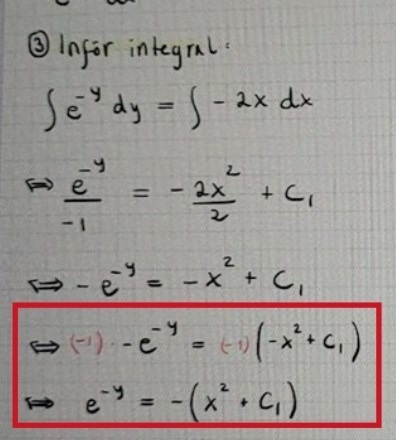 ③ Inför integral:
∫ e^{-y} dy = ∫ - 2x dx
⇔ e^{-y}/-1 = - 2x^2/2 + C_1
⇔ - e^{-y} = - x^2 + C_1
⇔ (-1) · - e^{-y} = (-1) (-x^2 + C_1)
⇔ e^{-y} = - (x^2 + C_1)